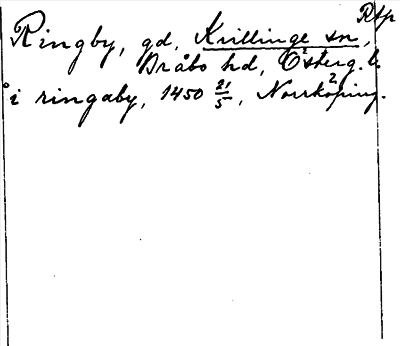 Rtp
Ringby, gd, Kvillinge sn,
Bråbo hd, Österg. l.
i ringaby, 1450 21/5, Norrköping.